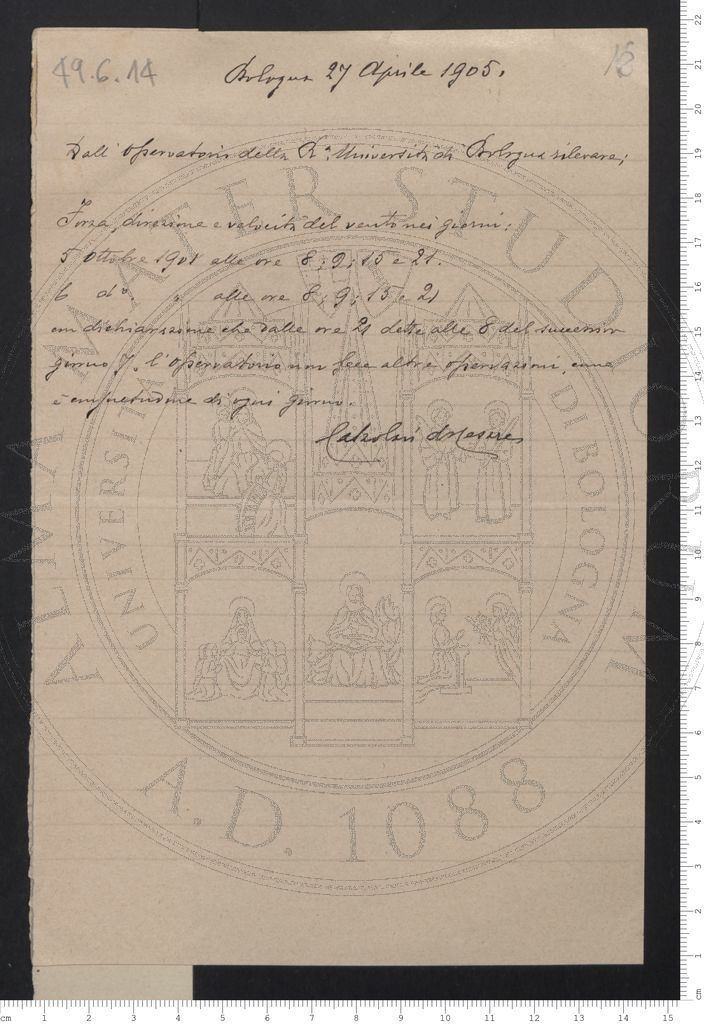 49.6.14
Bologna 27 Aprile 1905.
Dall'Osservatorio della Rª. Università di Bologna rilevare;
Forza, direzione e velocità del vento nei giorni:
5 Ottobre 1901 alle ore 8; 9; 15 e 21.
6 dº. " alle ore 8; 9; 15 e 21
con dichiarazione che dalle ore 21 dette alle 8 del successivo
giorno 7. l'Osservatorio non fece altre osservazioni, come
è consuetudine di ogni giorno.
ALMA MATER STUDIORUM
UNIVERSITÀ DI BOLOGNA
A.D. 1088